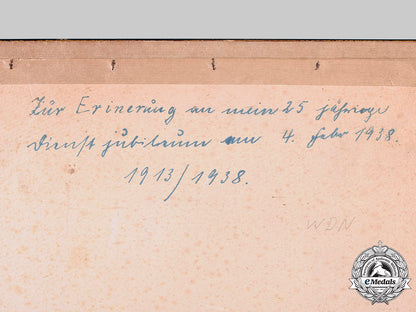 Zur Erinerung an mein 25 jährige
Dienst jubileum am 4. Febr 1938.
1913/1938.
WDN
eMedals